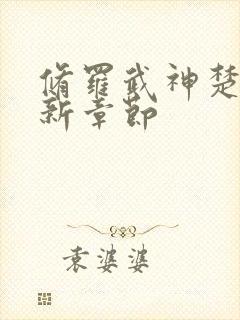 脩羅武神楚
新章節
袁婆婆